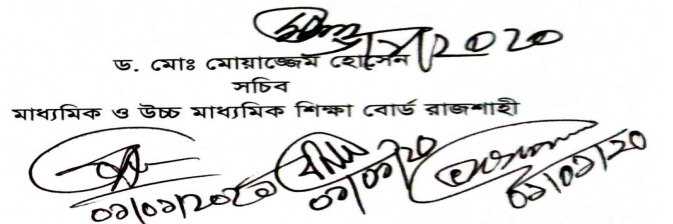 ২০২০
ড. মোঃ মোয়াজ্জেম হোসেন
সচিব
মাধ্যমিক ও উচ্চ মাধ্যমিক শিক্ষা বোর্ড রাজশাহী
০১/০১/২০২০ ০১/০১/২০ ০১/০১/২০